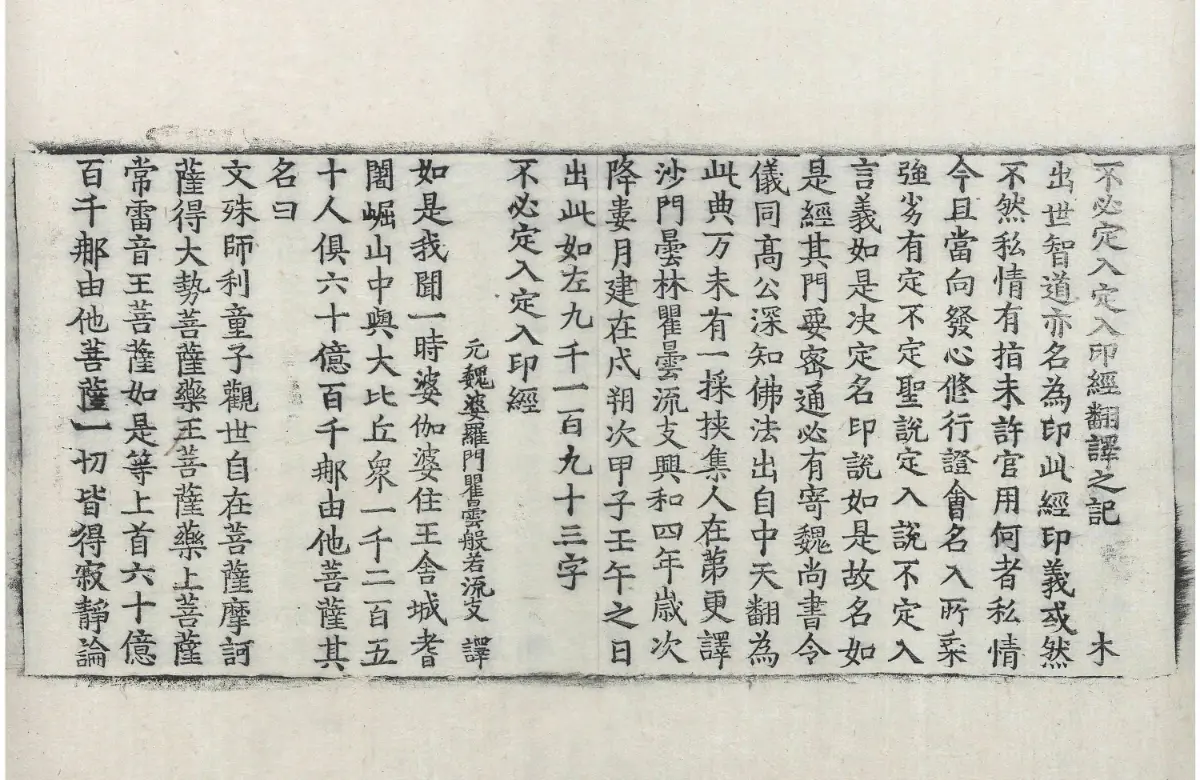 不必定入定入印經翻譯之記 木
出世智道亦名為印此經印義或然
不然私情有指未許官用何者私情
今且當向發心修行證會名入所乘
強劣有定不定聖說定入說不定入
言義如是决定名印說如是故名如
是經其門要密通必有寄魏尚書令
儀同高公深知佛法出自中天翻為
此典万未有一採挾集人在第更譯
沙門曇林瞿曇流支興和四年歲次
降婁月建在戍朔次甲子壬午之日
出此如左九千一百九十三字
不必定入定入印經
元魏婆羅門瞿曇般若流支 譯
如是我聞一時婆伽婆住王舍城耆
闍崛山中與大比丘衆一千二百五
十人俱六十億百千那由他菩薩其
名曰
文殊師利童子觀世自在菩薩摩訶
薩得大勢菩薩藥王菩薩藥上菩薩
常雷音王菩薩如是等上首六十億
百千那由他菩薩一切皆得寂靜論